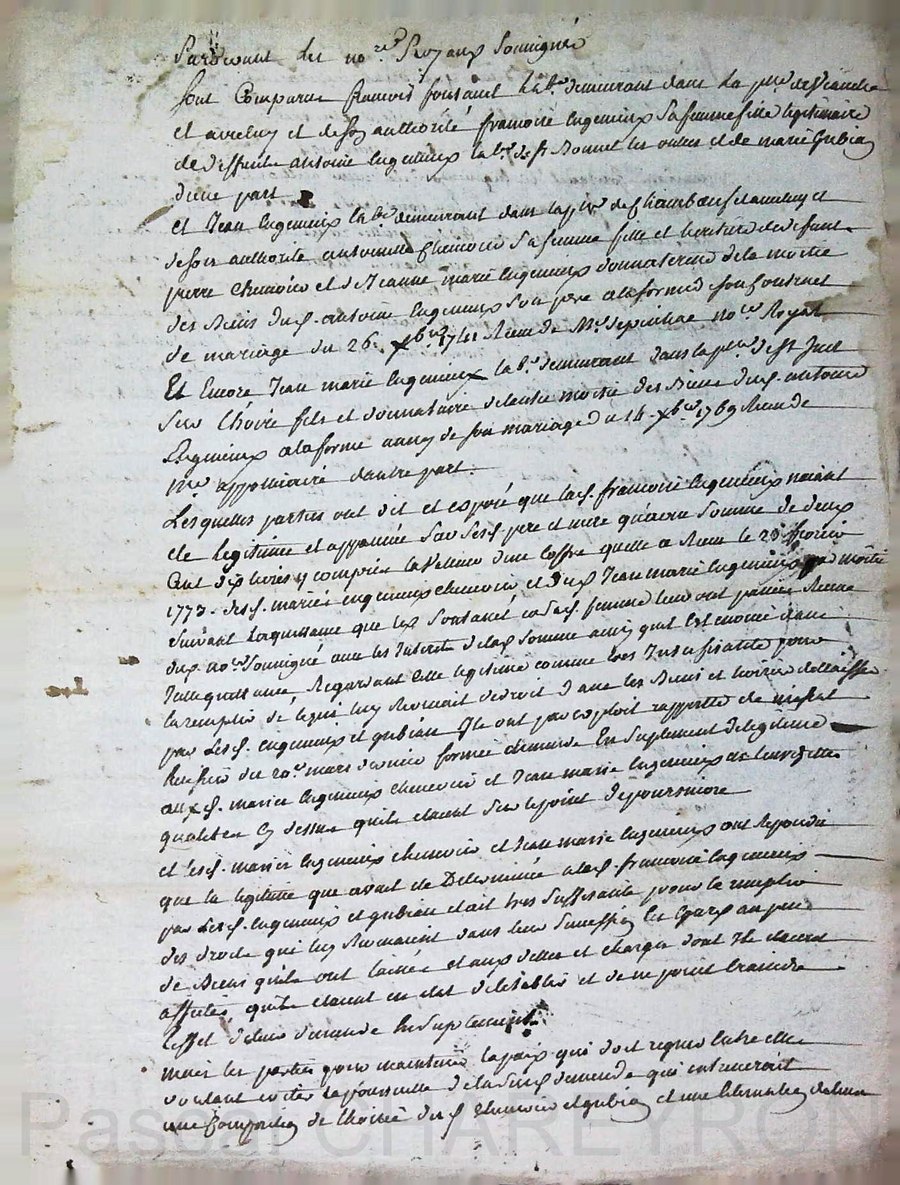 Pardevant les no.res Royaux Soussignés
sont Comparus francois fontanel lab.r demeurant dans la p.sse de
et avecluy et de son authorité francoise lugenieux sa femme fille legitimaire
de deffunts antoine lugenieux lab.r de st Bonnet les oules et de marie Gubian
dune part
et Jean lugenieux lab.r demeurant dans la p.sse de Chambœuf et avecluy et
de son authorité antoinette Chenevier sa femme fille et heritiere de defunts
pierre Chenevier et de Jeanne marie lugenieux donnataire de la moitié
des Biens dud. antoine lugenieux son pere a la forme de son Contract
de mariage du 26. xbre 1741 Receu de M.e no.re Royal
Et Encore Jean marie lugenieux lab.r demeurant dans la p.sse de st Just
sur Choire fils et donnataire de lautre moitié des Biens dud. antoine
lugenieux a la forme de son mariage du 14. xbre 1769 Receu de
M.e appolinaire dautre part.
Lesquelles parties ont dit et exposé que lad. francoise lugenieux
de legitime et par sesd. pere et mere quune somme de deux
Cent dix livres y compris la valleur dun Coffre quelle a Receu le 20
1773. desd. mariés lugenieux chenevier et dud. Jean marie lugenieux par moitié
suivant la quittance que led. fontanel et sad. femme leur ont passée Receue
dud. no.re soussigné avec les Interets de lad. somme ainsi quil est enoncé dans
quittance Regardant cette legitime comme tres Insufisante pour
la remplir de ce qui luy Revenait de droit dans les Biens et hoiries delaissés
par lesd. lugenieux et gubian Ils ont par exploit rapporté de
huissier du 20.e mars dernier formée demande En suplement de legitime
aux d. mariés lugenieux chenevier et Jean marie lugenieux
qualités cy dessus quils etaient sur le point de poursuivre
et lesd. mariés lugenieux chenevier et Jean marie lugenieux ont Repondu
que la legitime qui avait eté Determinée a lad. francoise lugenieux
par lesd. lugenieux et gubian etait tres suffisante pour la remplir
des droits qui luy Revenaient dans leur succession Eu Egard au peu
de Biens quils ont laissé et aux dettes et charges dont Ils etaient
affectés, quils etaient en etat detablir et de ne point craindre
leffet de leur demande En suplement.
mais les parties pour maintenir la paix qui doit regner entre elles
voulant eviter la poursuite de lad. demande qui entrainerait
une Composition de lhoirie dud. lugenieux et gubian et une
Pascal CHAREYRON